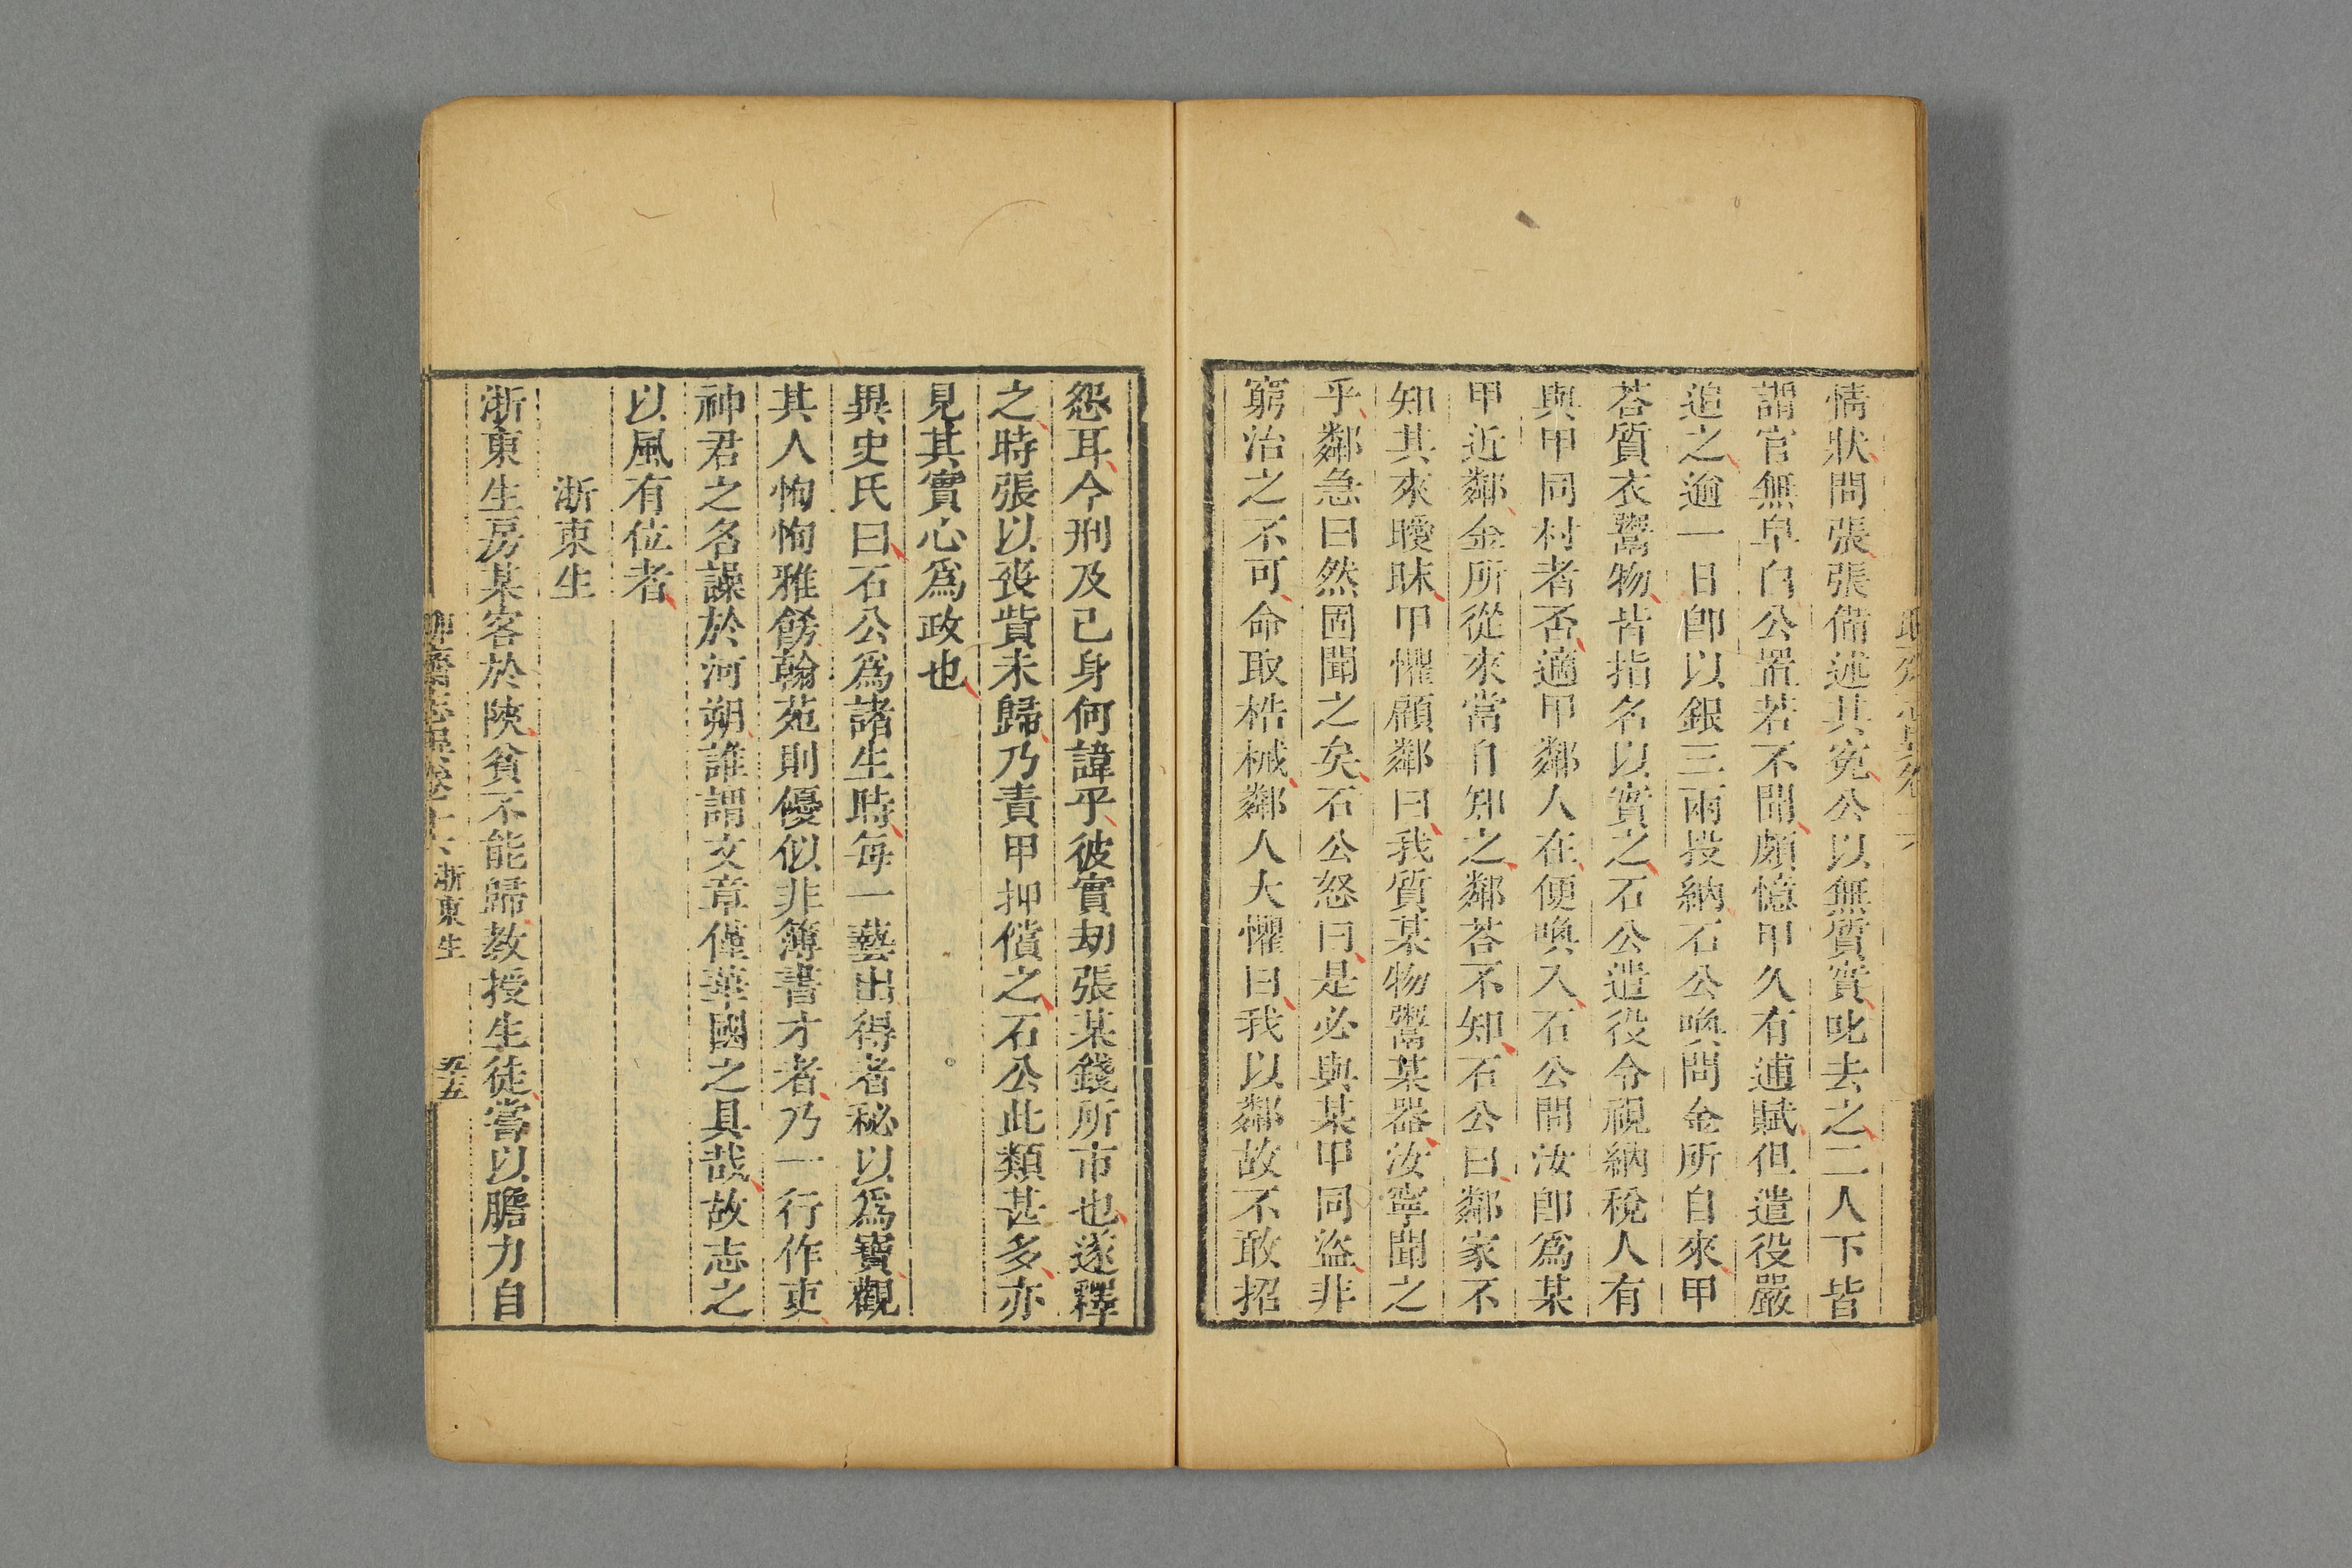 情狀問張張備述其冤公以無質實叱去之二人下皆
謂官無皁白公置若不聞頗憶甲久有逋賦但遣役嚴
追之逾一日卽以銀三兩投納石公喚問金所自來甲
荅質衣鬻物皆指名以實之石公遣役令視納稅人有
與甲同村者否適甲鄰人在便喚入石公問汝卽爲某
甲近鄰金所從來當自知之鄰荅不知石公曰鄰家不
知其來曖昧甲懼顧鄰曰我質某物鬻某器汝寧聞之
乎鄰急曰然固聞之矣石公怒曰是必與某甲同盜非
窮治之不可命取梏械鄰人大懼曰我以鄰故不敢招
怨耳今刑及己身何諱乎彼實刼張某錢所市也遂釋
之時張以丧貲未歸乃責甲押償之石公此類甚多亦
見其實心爲政也
異史氏曰石公爲諸生時每一藝出得者秘以爲寶觀
其人恂恂雅餝翰苑則優似非簿書才者乃一行作吏
神君之名譟於河朔誰謂文章僅華國之具哉故志之
以風有位者
浙東生
浙東生房某客於陜貧不能歸教授生徒嘗以膽力自
浙東生
五五